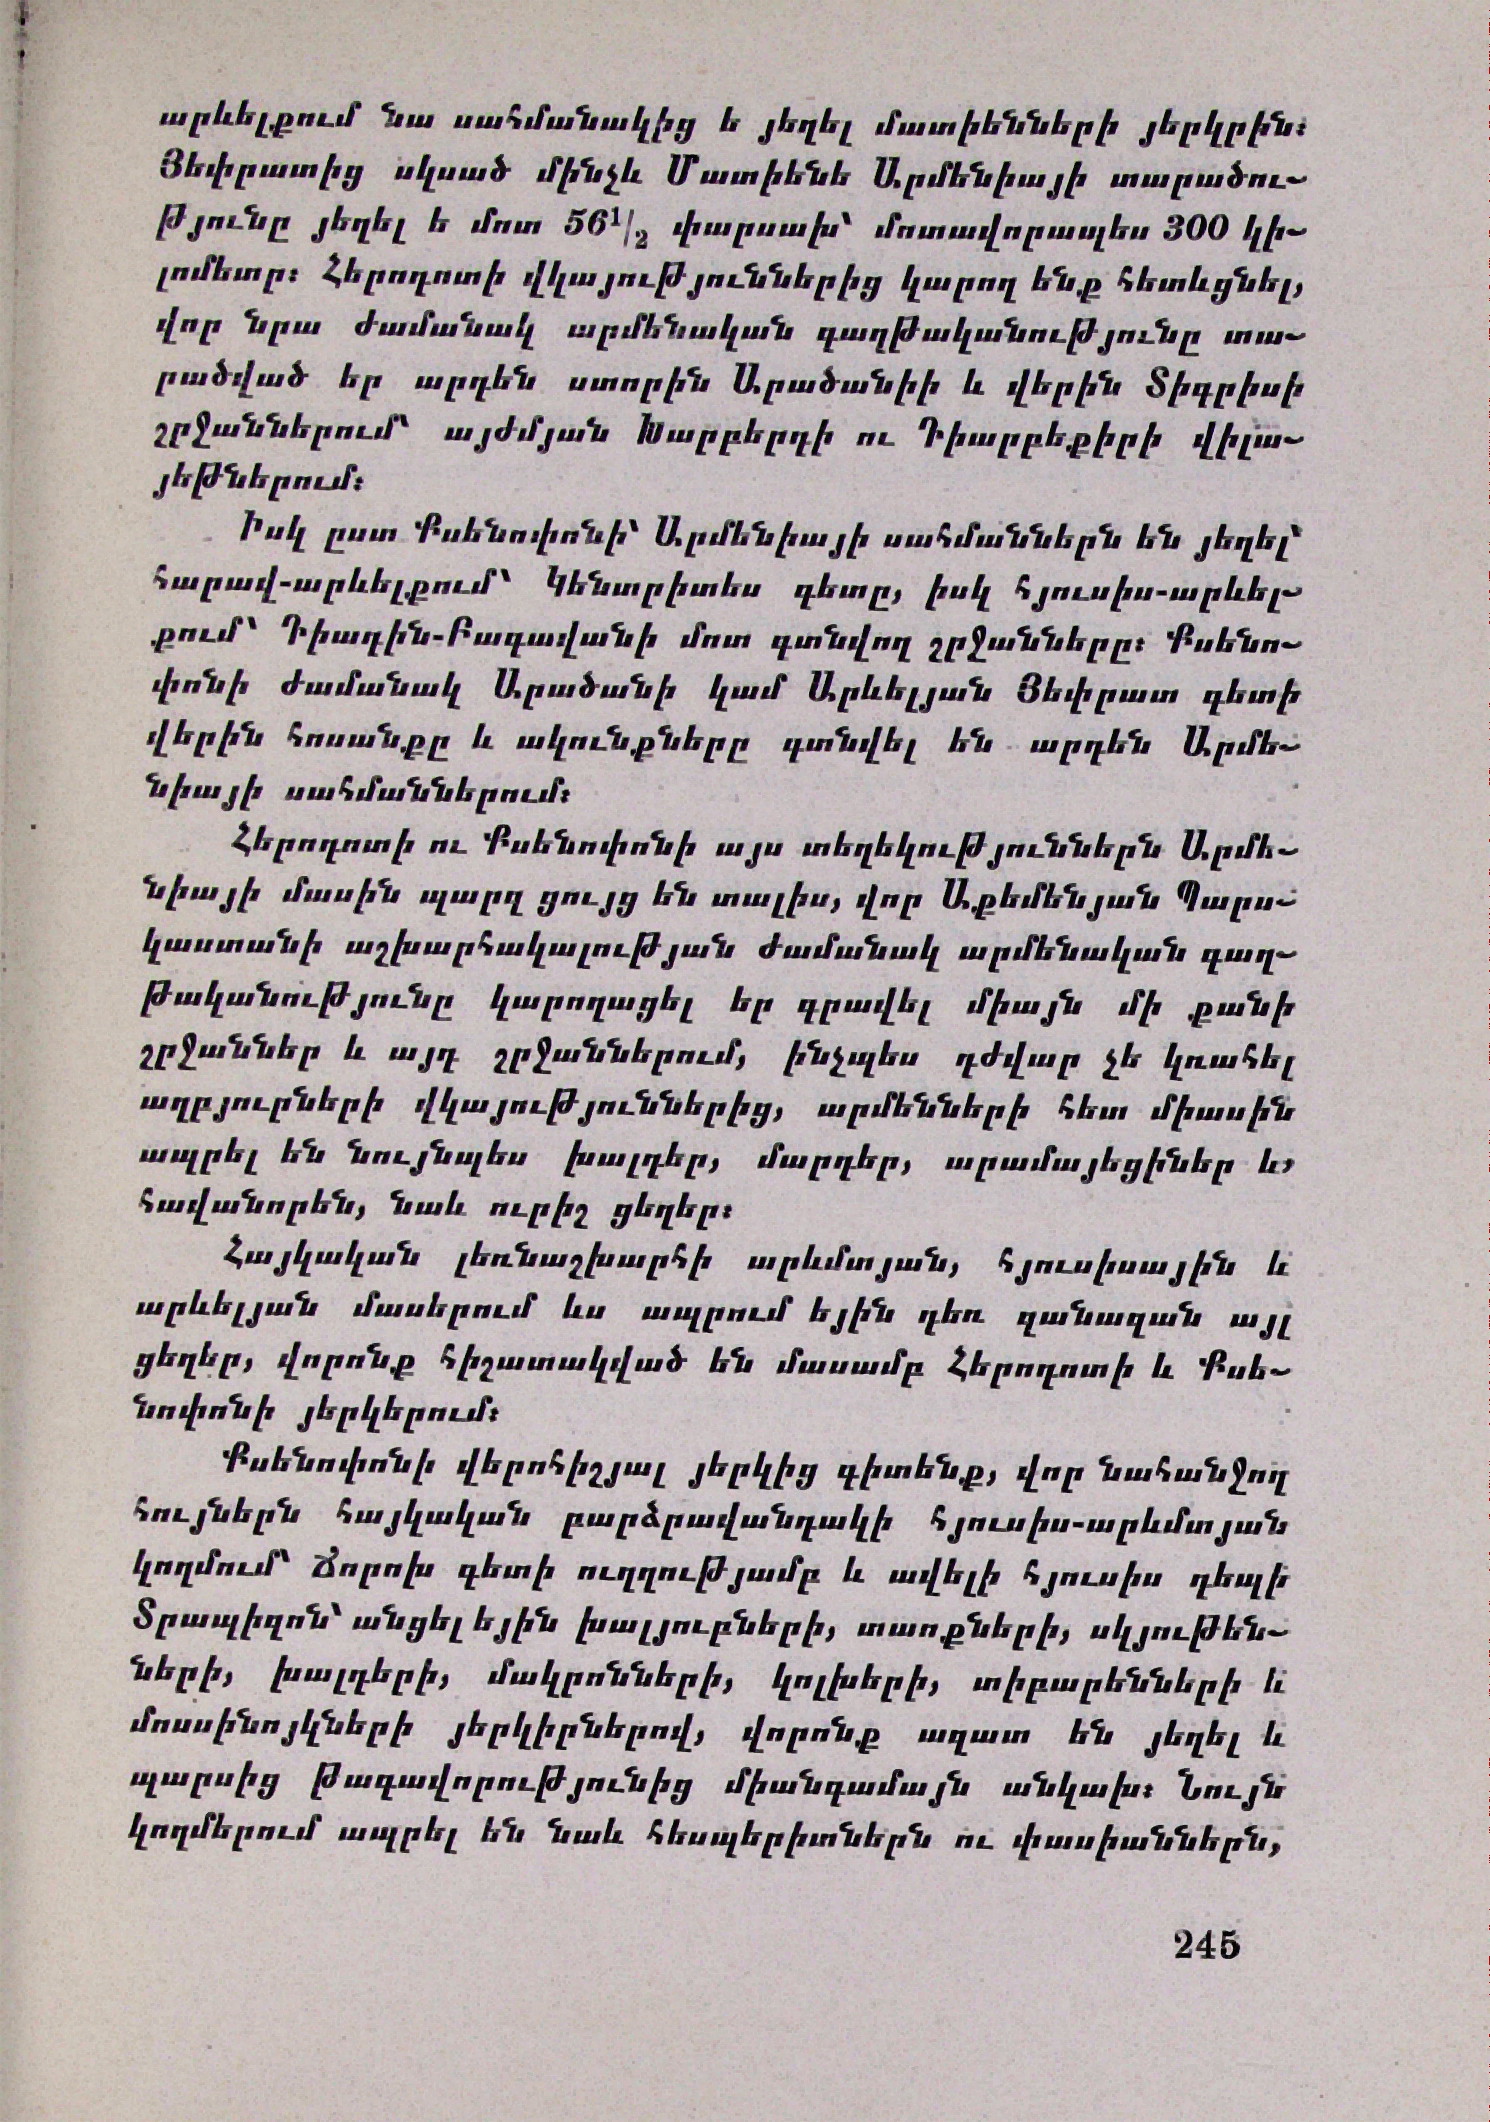 արևելքում նա սահմանակից ե յեղել մատիենների յերկրին։
Յեփրատից սկսած մինչև Մատիենե Արմենիայի տարածու֊
թյունը յեղել ե մոտ 56¹/₂ փարսախ՝ մոտավորապես 300 կի֊
լոմետր։ Հերոդոտի վկայություններից կարող ենք հետևցնել,
վոր նրա ժամանակ արմենական գաղթականությունը տա֊
րածված եր արդեն ստորին Արածանիի և վերին Տիգրիսի
շրջաններում՝ այժմյան Խարբերդի ու Դիարբեքիրի վիլա֊
յեթներում։
Իսկ ըստ Քսենոփոնի՝ Արմենիայի սահմաններն են յեղել՝
հարավ-արևելքում՝ Կենտրիտես գետը, իսկ հյուսիս-արևել֊
քում՝ Դիադին-Բագավանի մոտ գտնվող շրջանները։ Քսենո֊
փոնի ժամանակ Արածանի կամ Արևելյան Յեփրատ գետի
վերին հոսանքը և ակունքները գտնվել են արդեն Արմե֊
նիայի սահմաններում։
Հերոդոտի ու Քսենոփոնի այս տեղեկություններն Արմե֊
նիայի մասին պարզ ցույց են տալիս, վոր Աքեմենյան Պարս֊
կաստանի աշխարհակալության ժամանակ արմենական գաղ֊
թականությունը կարողացել եր գրավել միայն մի քանի
շրջաններ և այդ շրջաններում, ինչպես դժվար չե կռահել
աղբյուրների վկայություններից, արմենների հետ միասին
ապրել են նույնպես խալդեր, մարդեր, արամայեցիներ և,
հավանորեն, նաև ուրիշ ցեղեր։
Հայկական լեռնաշխարհի արևմտյան, հյուսիսային և
արևելյան մասերում ևս ապրում եյին դեռ զանազան այլ
ցեղեր, վորոնք հիշատակված են մասամբ Հերոդոտի և Քսե֊
նոփոնի յերկերում։
Քսենոփոնի վերոհիշյալ յերկից գիտենք, վոր նահանջող
հույներն հայկական բարձրավանդակի հյուսիս-արևմտյան
կողմում՝ Ճորոխ գետի ուղղությամբ և ավելի հյուսիս դեպի
Տրապիզոն՝ անցել եյին խալյուբների, տաոքների, սկյութեն֊
ների, խալդերի, մակրոնների, կոլխերի, տիբարենների և
մոսսինոյկների յերկիրներով, վորոնք ազատ են յեղել և
պարսից թագավորությունից միանգամայն անկախ։ Նույն
կողմերում ապրել են նաև հեսպերիտներն ու փասիաններն,
245